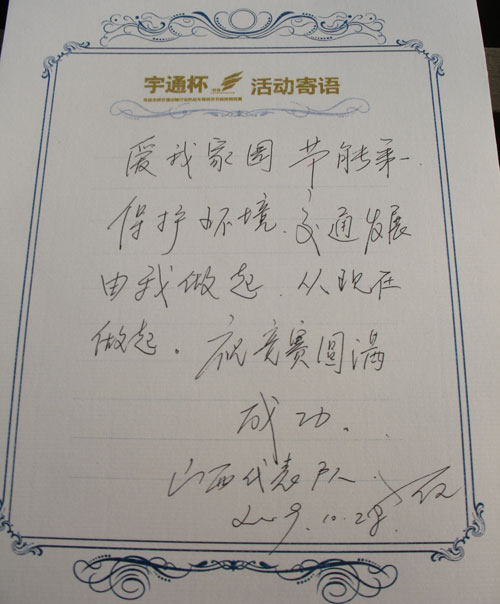 宇通杯 活动寄语
爱我家园 节能第一.
保护环境.交通发展
由我做起.从现在
做起。祝竞赛圆满
成功。
山西代表队
2009.10.28.